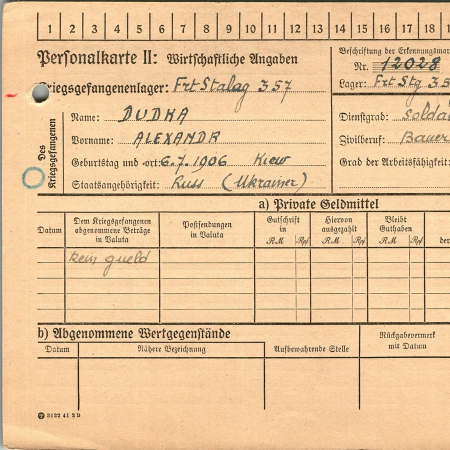 1 2 3 4 5 6 7 8 9 10 11 12 13 14 15 16 17 18
Personalkarte II: Wirtschaftliche Angaben
Kriegsgefangenenlager: Frt Stalag 357
Beschriftung der Erkennungsmar
Nr. 12028
Lager: Frt Stg 35
Des Kriegsgefangenen
Name: DUDKA
Vorname: ALEXANDR
Geburtstag und -ort: 6.7.1906 Kiew
Staatsangehörigkeit: Russ (Ukrainer)
Dienstgrad: Solda
Zivilberuf: Bauer
Grad der Arbeitsfähigkeit:
a) Private Geldmittel
Datum
Dem Kriegsgefangenen abgenommene Beträge in Valuta
Postsendungen in Valuta
Gutschrift in
RM Rpf
Hiervon ausgezahlt
RM Rpf
Bleibt Guthaben
RM Rpf
der
kein gueld
b) Abgenommene Wertgegenstände
Datum
Nähere Bezeichnung
Aufbewahrende Stelle
Rückgabevermerk mit Datum
3122 41 2 B